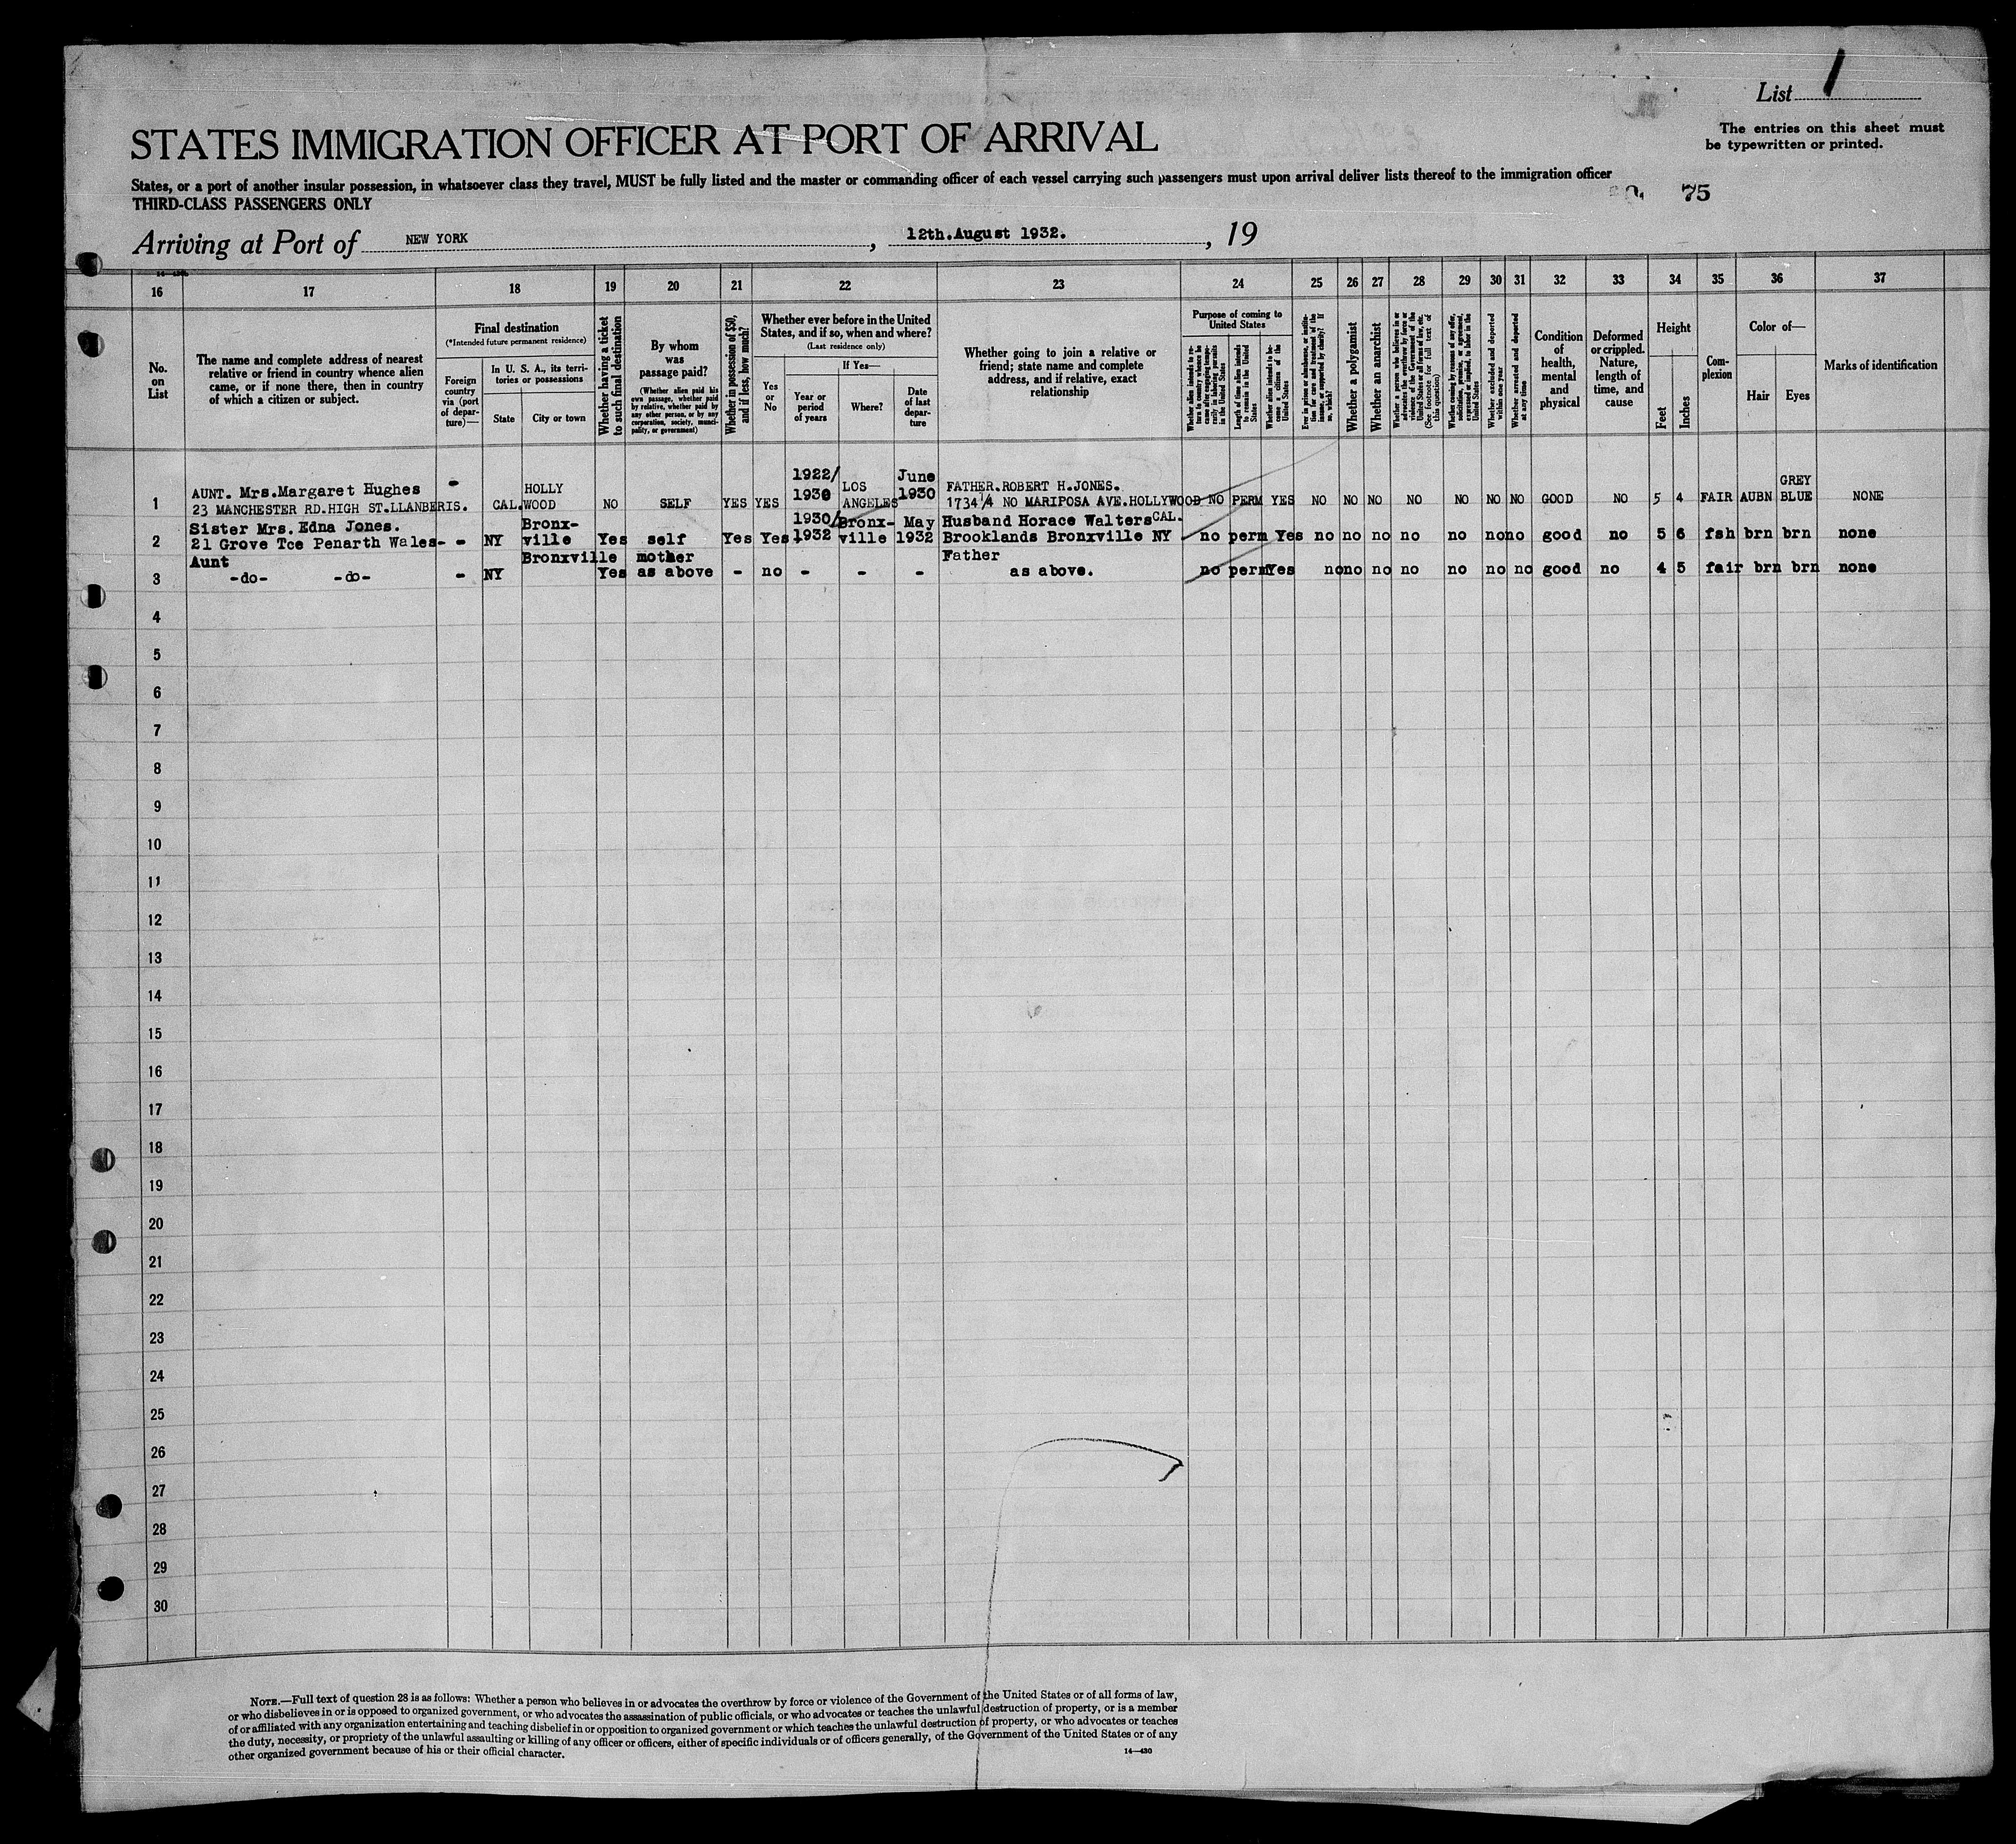 List 1
The entries on this sheet must
be typewritten or printed.
STATES IMMIGRATION OFFICER AT PORT OF ARRIVAL
States, or a port of another insular possession, in whatsoever class they travel, MUST be fully listed and the master or commanding officer of each vessel carrying such passengers must upon arrival deliver lists thereof to the immigration officer
THIRD-CLASS PASSENGERS ONLY
75
Arriving at Port of NEW YORK, 12th.August 1932., 19
16 17 18 19 20 21 22 23 24 25 26 27 28 29 30 31 32 33 34 35 36 37
No.
on
List
The name and complete address of nearest
relative or friend in country whence alien
came, or if none there, then in country
of which a citizen or subject.
Final destination
(*Intended future permanent residence)
Foreign
country
via (port
of depar-
ture)—
In U. S. A., its terri-
tories or possessions
State
City or town
Whether having a ticket
to such final destination
By whom
was
passage paid?
(Whether alien paid his
own passage, whether paid
by relative, whether paid by
any other person, or by any
corporation, society, munici-
pality, or government)
Whether in possession of $50,
and if less, how much?
Whether ever before in the United
States, and if so, when and where?
(Last residence only)
Yes
or
No
If Yes—
Year or
period
of years
Where?
Date
of last
depar-
ture
Whether going to join a relative or
friend; state name and complete
address, and if relative, exact
relationship
Purpose of coming to
United States
Whether alien intends to re-
turn to country whence he
came after engaging tempo-
rarily in laboring pursuits
in the United States
Length of time alien intends
to remain in the United
States
Whether alien intends to be-
come a citizen of the
United States
Ever in prison or almshouse, or institu-
tion for care and treatment of the
insane, or supported by charity? If
so, which?
Whether a polygamist
Whether an anarchist
Whether a person who believes in or
advocates the overthrow by force or
violence of the Government of the
United States or all forms of law, etc.
(See footnote for full text of
this question)
Whether coming by reason of any offer,
solicitation, promise, or agreement,
expressed or implied, to labor in the
United States
Whether excluded and deported
within one year
Whether arrested and deported
at any time
Condition
of
health,
mental
and
physical
Deformed
or crippled.
Nature,
length of
time, and
cause
Height
Feet
Inches
Com-
plexion
Color of—
Hair
Eyes
Marks of identification
AUNT. Mrs.Margaret Hughes - HOLLY 1922/ LOS June FATHER.ROBERT H.JONES. GREY
1 23 MANCHESTER RD.HIGH ST.LLANBERIS. CAL.WOOD NO SELF YES YES 1930 ANGELES 1930 1734¼ NO MARIPOSA AVE.HOLLYWOOD NO PERM YES NO NO NO NO NO NO NO GOOD NO 5 4 FAIR AUBN BLUE NONE
Sister Mrs. Edna Jones. Bronx- 1930/ Bronx- May Husband Horace Walters CAL.
2 21 Grove Tce Penarth Wales- - NY ville Yes self Yes Yes 1932 ville 1932 Brooklands Bronxville NY no perm Yes no no no no no no no good no 5 6 fsh brn brn none
Aunt Bronxville mother Father
3 -do- -do- - NY Yes as above - no - - - as above. no perm Yes no no no no no no no good no 4 5 fair brn brn none
4
5
6
7
8
9
10
11
12
13
14
15
16
17
18
19
20
21
22
23
24
25
26
27
28
29
30
NOTE.—Full text of question 28 is as follows: Whether a person who believes in or advocates the overthrow by force or violence of the Government of the United States or of all forms of law,
or who disbelieves in or is opposed to organized government, or who advocates the assassination of public officials, or who advocates or teaches the unlawful destruction of property, or is a member
of or affiliated with any organization entertaining and teaching disbelief in or opposition to organized government or which teaches the unlawful destruction of property, or who advocates or teaches
the duty, necessity, or propriety of the unlawful assaulting or killing of any officer or officers, either of specific individuals or of officers generally, of the Government of the United States or of any
other organized government because of his or their official character.
14—430